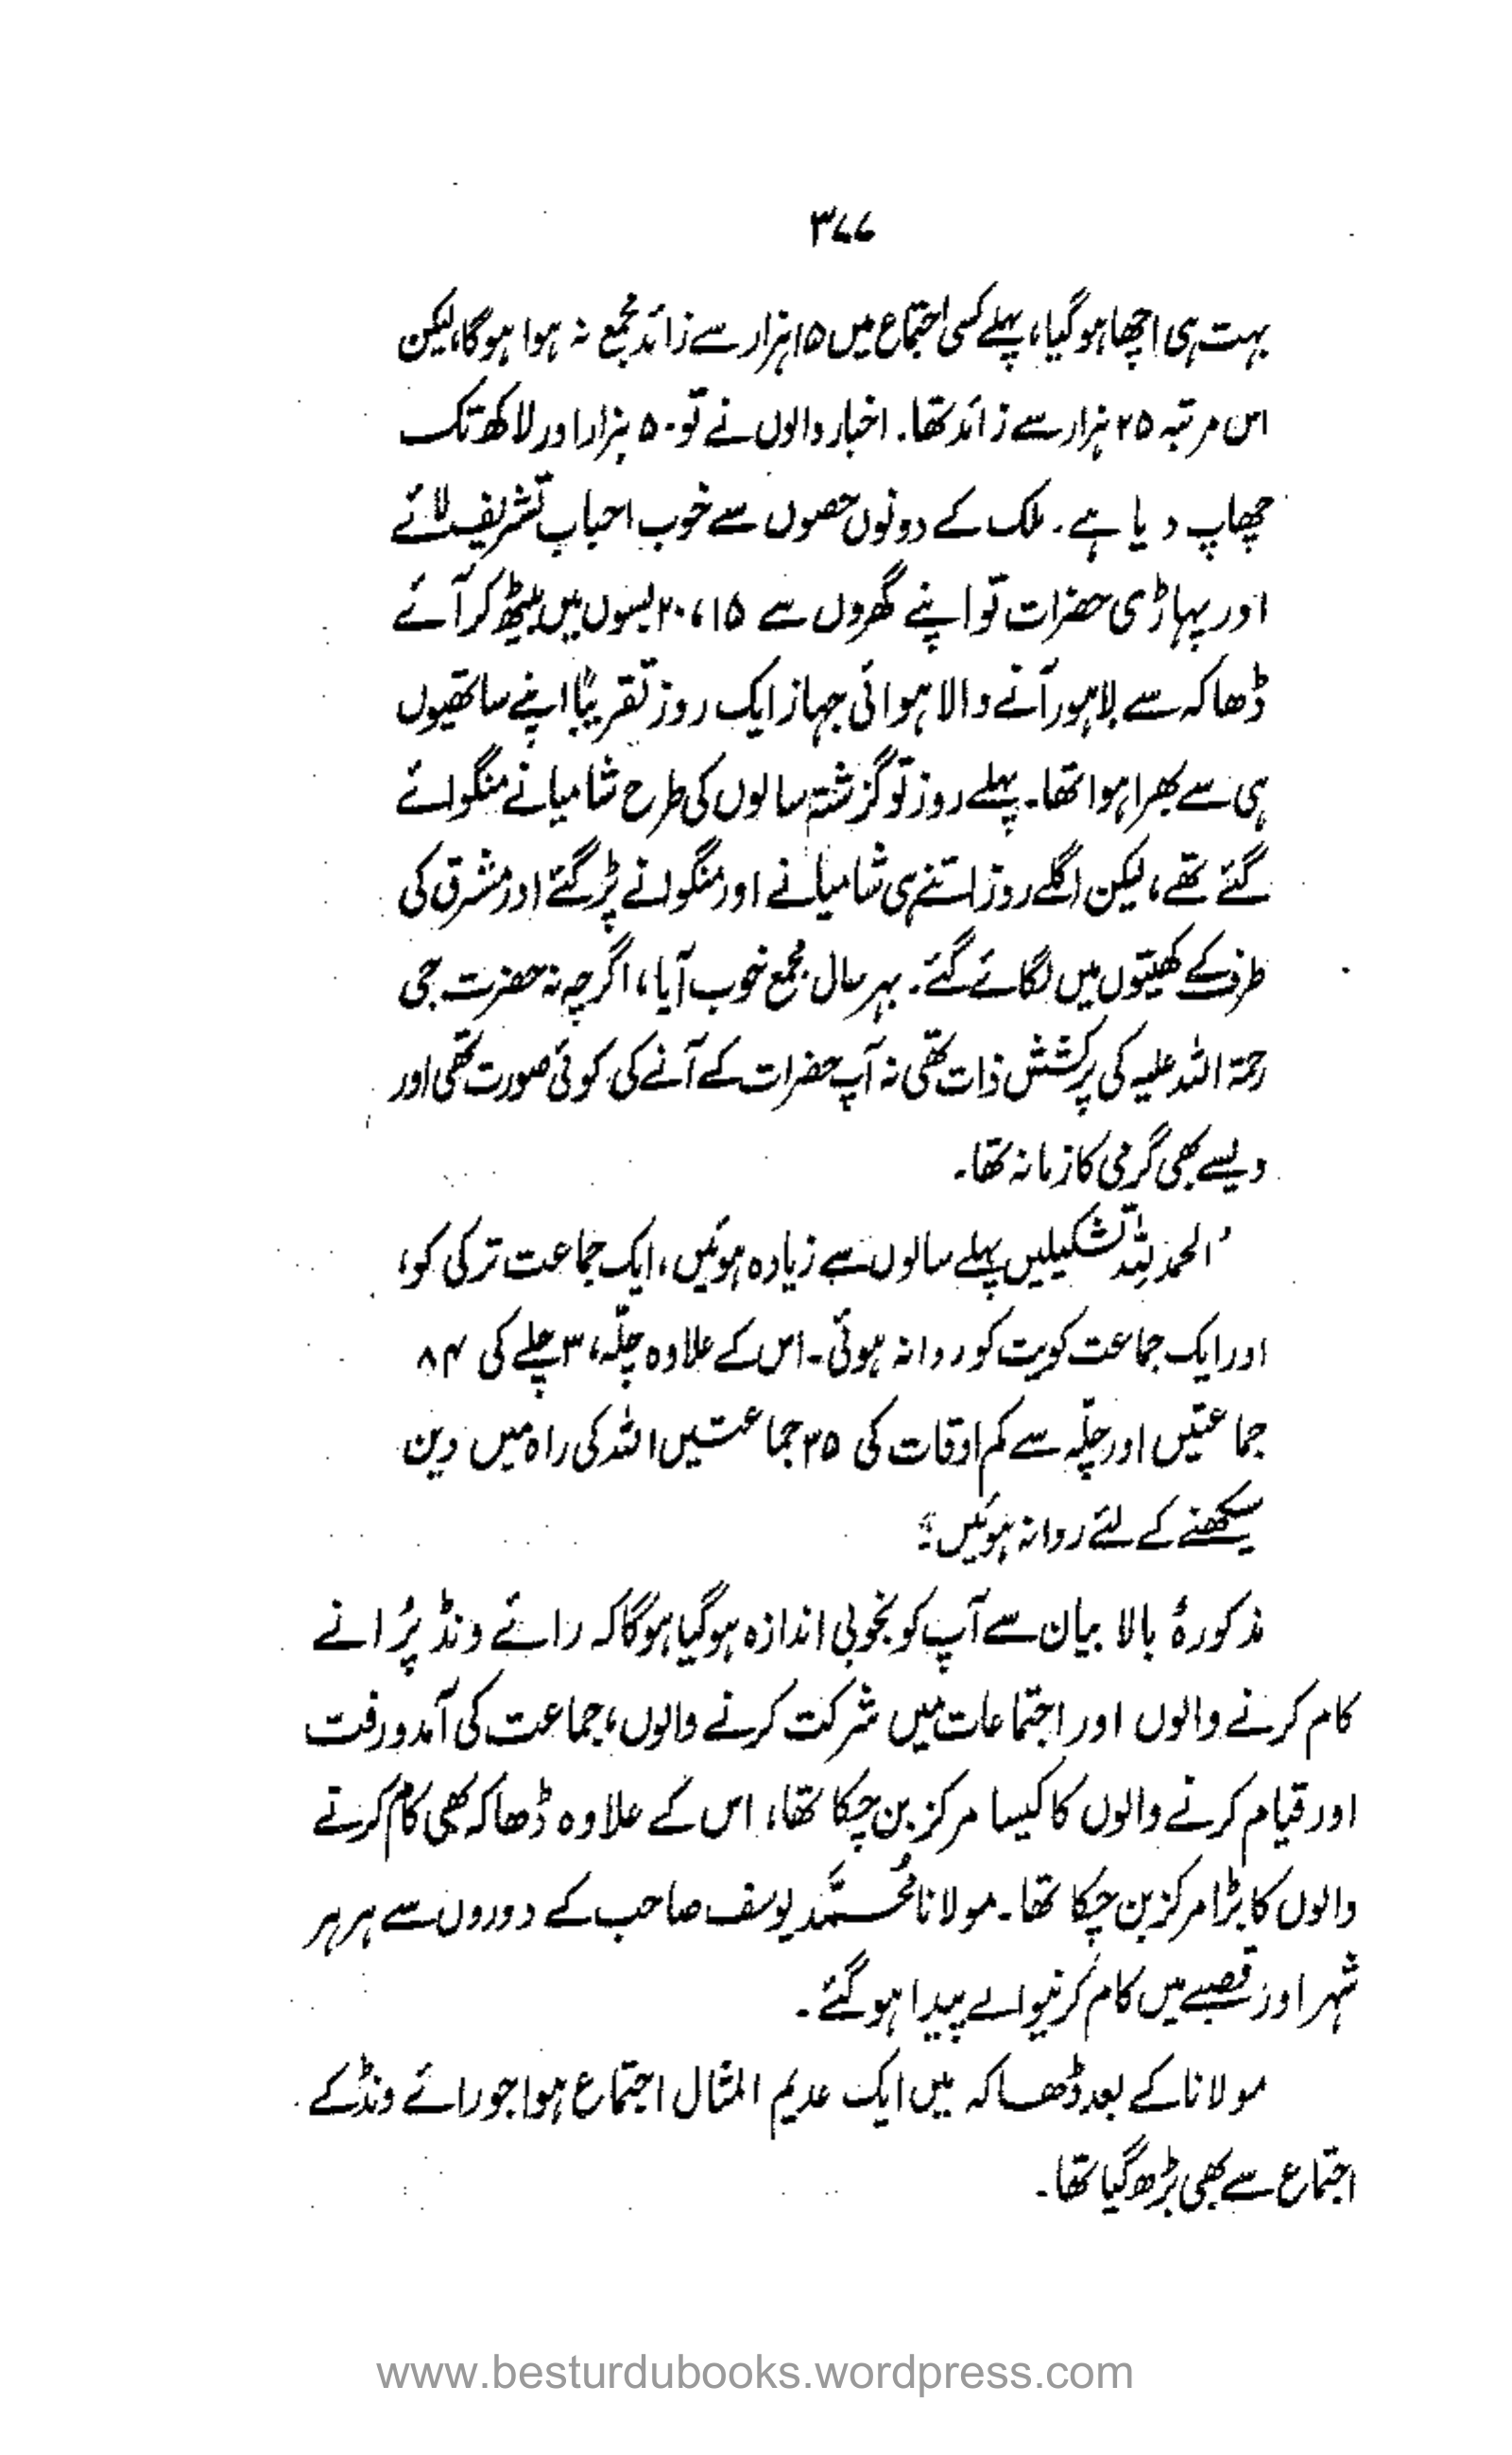 ۳۷۷
بہت ہی اچھا ہو گیا، پہلے کسی اجتماع میں ۱۵ ہزار سے زائد مجمع نہ ہوا ہوگا، لیکن
اس مرتبہ ۲۵ ہزار سے زائد تھا۔ اخبار والوں نے تو ۵۰ ہزار اور لاکھ تک
چھاپ دیا ہے۔ ملک کے دونوں حصوں سے خوب احباب تشریف لائے
اور پہاڑی حضرات تو اپنے گھروں سے ۱۵، ۲۰ بسوں میں بیٹھ کر آئے
ڈھاکہ سے لاہور آنے والا ہوائی جہاز ایک روز تقریباً اپنے ساتھیوں
ہی سے بھرا ہوا تھا۔ پہلے روز تو گزشتہ سالوں کی طرح شامیانے منگوائے
گئے تھے، لیکن اگلے روز اتنے ہی شامیانے اور منگوانے پڑ گئے اور مشرق کی
طرف کے کھیتوں میں لگائے گئے۔ بہر حال مجمع خوب آیا، اگرچہ نہ حضرت جی
رحمۃ اللہ علیہ کی پرکشش ذات تھی نہ آپ حضرات کے آنے کی کوئی صورت تھی اور
ویسے بھی گرمی کا زمانہ تھا۔
"الحمد للہ تشکیلیں پہلے سالوں سے زیادہ ہوئیں، ایک جماعت ترکی کو،
اور ایک جماعت کویت کو روانہ ہوئی۔ اس کے علاوہ چلّہ، ۳ چلے کی ۸۴
جماعتیں اور چلّہ سے کم اوقات کی ۳۵ جماعتیں اللہ کی راہ میں دین
سیکھنے کے لئے روانہ ہوئیں۔"
مذکورۂ بالا بیان سے آپ کو بخوبی اندازہ ہو گیا ہوگا کہ رائے ونڈ پُرانے
کام کرنے والوں اور اجتماعات میں شرکت کرنے والوں، جماعت کی آمد ورفت
اور قیام کرنے والوں کا کیسا مرکز بن چکا تھا، اس کے علاوہ ڈھاکہ بھی کام کرنے
والوں کا بڑا مرکز بن چکا تھا۔ مولانا محمّد یوسف صاحب کے دوروں سے ہر ہر
شہر اور قصبے میں کام کرنیوالے پیدا ہو گئے۔
مولانا کے بعد ڈھاکہ میں ایک عدیم المثال اجتماع ہوا جو رائے ونڈ کے
اجتماع سے بھی بڑھ گیا تھا۔
www.besturdubooks.wordpress.com